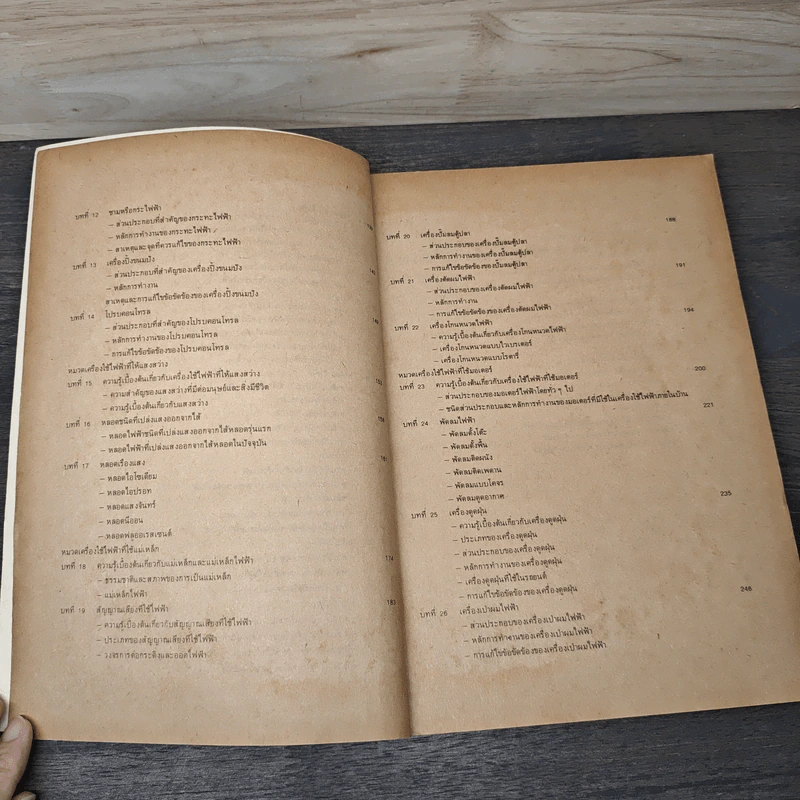 บทที่ 12 ชามหรือกระไฟฟ้า
– ส่วนประกอบที่สำคัญของกระทะไฟฟ้า
– หลักการทำงานของกระทะไฟฟ้า
– สาเหตุและจุดที่ควรแก้ไขของกระทะไฟฟ้า
บทที่ 13 เครื่องปิ้งขนมปัง
– ส่วนประกอบที่สำคัญของเครื่องปิ้งขนมปัง
– หลักการทำงาน
สาเหตุและการแก้ไขข้อขัดข้องของเครื่องปิ้งขนมปัง
บทที่ 14 โปรบคอนโทรล
– ส่วนประกอบที่สำคัญของโปรบคอนโทรล
– หลักการทำงานของโปรบคอนโทรล
– การแก้ไขข้อขัดข้องของโปรบคอนโทรล
หมวดเครื่องใช้ไฟฟ้าที่ให้แสงสว่าง
บทที่ 15 ความรู้เบื้องต้นเกี่ยวกับเครื่องใช้ไฟฟ้าที่ให้แสงสว่าง
– ความสำคัญของแสงสว่างที่มีต่อมนุษย์และสิ่งมีชีวิต
– ความรู้เบื้องต้นเกี่ยวกับแสงสว่าง
บทที่ 16 หลอดชนิดที่เปล่งแสงออกจากไส้
– หลอดไฟฟ้าชนิดที่เปล่งแสงออกจากไส้หลอดรุ่นแรก
– หลอดไฟฟ้าที่เปล่งแสงออกจากไส้หลอดในปัจจุบัน
บทที่ 17 หลอดเรืองแสง
– หลอดไอโซเดียม
– หลอดไอปรอท
– หลอดแสงจันทร์
– หลอดนีออน
– หลอดฟลูออเรสเซนต์
หมวดเครื่องใช้ไฟฟ้าที่ใช้แม่เหล็ก
บทที่ 18 ความรู้เบื้องต้นเกี่ยวกับแม่เหล็กและแม่เหล็กไฟฟ้า 174
– ธรรมชาติและสภาพของการเป็นแม่เหล็ก
– แม่เหล็กไฟฟ้า
บทที่ 19 สัญญาณเสียงที่ใช้ไฟฟ้า 183
– ความรู้เบื้องต้นเกี่ยวกับสัญญาณเสียงที่ใช้ไฟฟ้า
– ประเภทของสัญญาณเสียงที่ใช้ไฟฟ้า
– วงจรการต่อกระดิ่งและออดไฟฟ้า
บทที่ 20 เครื่องปั๊มลมตู้ปลา 188
– ส่วนประกอบของเครื่องปั๊มลมตู้ปลา
– หลักการทำงานของเครื่องปั๊มลมตู้ปลา
– การแก้ไขข้อขัดข้องของปั๊มลมตู้ปลา
บทที่ 21 เครื่องตัดผมไฟฟ้า 191
– ส่วนประกอบของเครื่องตัดผมไฟฟ้า
– หลักการทำงาน
– การแก้ไขข้อขัดข้องของเครื่องตัดผมไฟฟ้า
บทที่ 22 เครื่องโกนหนวดไฟฟ้า 194
– ความรู้เบื้องต้นเกี่ยวกับเครื่องโกนหนวดไฟฟ้า
– เครื่องโกนหนวดแบบไวเบรเตอร์
– เครื่องโกนหนวดแบบโรตารี่
หมวดเครื่องใช้ไฟฟ้าที่ใช้มอเตอร์
บทที่ 23 ความรู้เบื้องต้นเกี่ยวกับเครื่องใช้ไฟฟ้าที่ใช้มอเตอร์ 200
– ส่วนประกอบของมอเตอร์ไฟฟ้าโดยทั่ว ๆ ไป
– ชนิดส่วนประกอบและหลักการทำงานของมอเตอร์ที่มีใช้ในเครื่องใช้ไฟฟ้าภายในบ้าน
บทที่ 24 พัดลมไฟฟ้า 221
– พัดลมตั้งโต๊ะ
– พัดลมตั้งพื้น
– พัดลมติดผนัง
– พัดลมติดเพดาน
– พัดลมแบบโคจร
– พัดลมดูดอากาศ
บทที่ 25 เครื่องดูดฝุ่น 235
– ความรู้เบื้องต้นเกี่ยวกับเครื่องดูดฝุ่น
– ประเภทของเครื่องดูดฝุ่น
– ส่วนประกอบของเครื่องดูดฝุ่น
– หลักการทำงานของเครื่องดูดฝุ่น
– เครื่องดูดฝุ่นที่ใช้ในรถยนต์
– การแก้ไขข้อขัดข้องของเครื่องดูดฝุ่น
บทที่ 26 เครื่องเป่าผมไฟฟ้า 246
– ส่วนประกอบของเครื่องเป่าผมไฟฟ้า
– หลักการทำงานของเครื่องเป่าผมไฟฟ้า
– การแก้ไขข้อขัดข้องของเครื่องเป่าผมไฟฟ้า